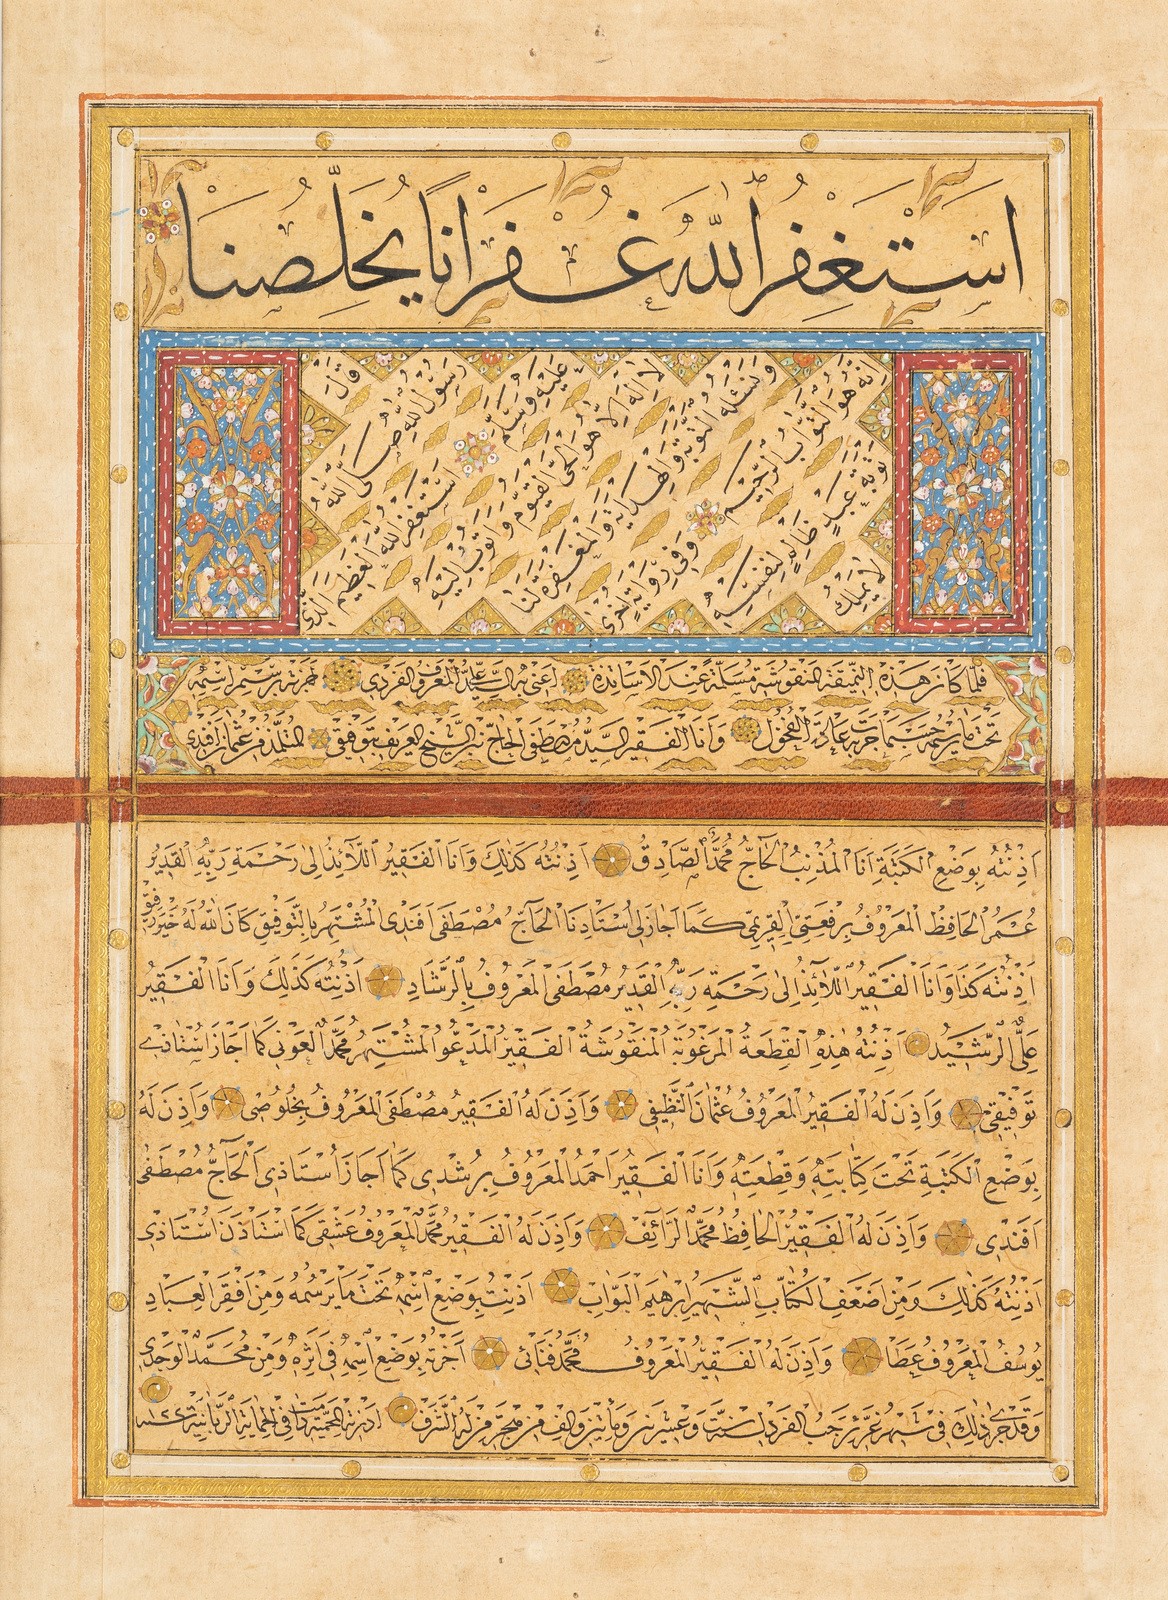 استغفر الله غفرانا يخلصنا
قال رسول الله صلى الله
عليه وسلم استغفر الله العظيم الذي
لا إله إلا هو الحي القيوم وأتوب إليه
ونسئله التوبة والهداية والمغفرة لنا
إنه هو التواب الرحيم وفي رواية أخرى
توبة عبد ظالم لنفسه
لا يملك
فلما كان هذه النميقة المنقوشة مسلمة عند الاساتذة اعني به السيد علي المعروف الفردي اسمه
تحت ما يرسمه حسبما جرت به عادة الفحول وانا الفقير السيد مصطفى الحاج الشهير بتوفيق من عثمان افندي
اذنته بوضع الكتبة انا المذنب الحاج محمد الصادق اذنته كذلك وانا الفقير اللائذ الى رحمة ربه القدير
عمر الحافظ المعروف برفعتي القريمي كما اجاز لي استاذنا الحاج مصطفى افندي المشتهر بالتوفيق كان الله له خير رفيق
اذنته كذا وانا الفقير اللائذ الى رحمة ربه القدير مصطفى المعروف بالرشاد اذنته كذلك وانا الفقير
علي الرشيد اذنته هذه القطعة المرغوبة المنقوشة الفقير المدعو المشتهر محمد العوني كما اجاز استاذي
توفيقي واذن له الفقير المعروف عثمان النظيفي واذن له الفقير مصطفى المعروف بخلوصي واذن له
بوضع الكتبة تحت كتابته وقطعته وانا الفقير احمد المعروف برشدي كما اجاز استاذي الحاج مصطفى
افندي واذن له الفقير الحافظ محمد الرائف واذن له الفقير محمد المعروف عشقي كما استاذن استاذي
اذنته كذلك ومن اضعف الكتاب الشهير ابرهيم البواب اذنت بوضع اسمه تحت ما يرسمه ومن افقر العباد
يوسف المعروف عطا واذن له الفقير المعروف محمد فنائي اجزته بوضع اسمه في اثره ومن محمد الوجدي
وقد جرى ذلك في شهر غرة رجب الفرد لسنة ست وعشرين ومأتين والف من هجرة من له الشرف